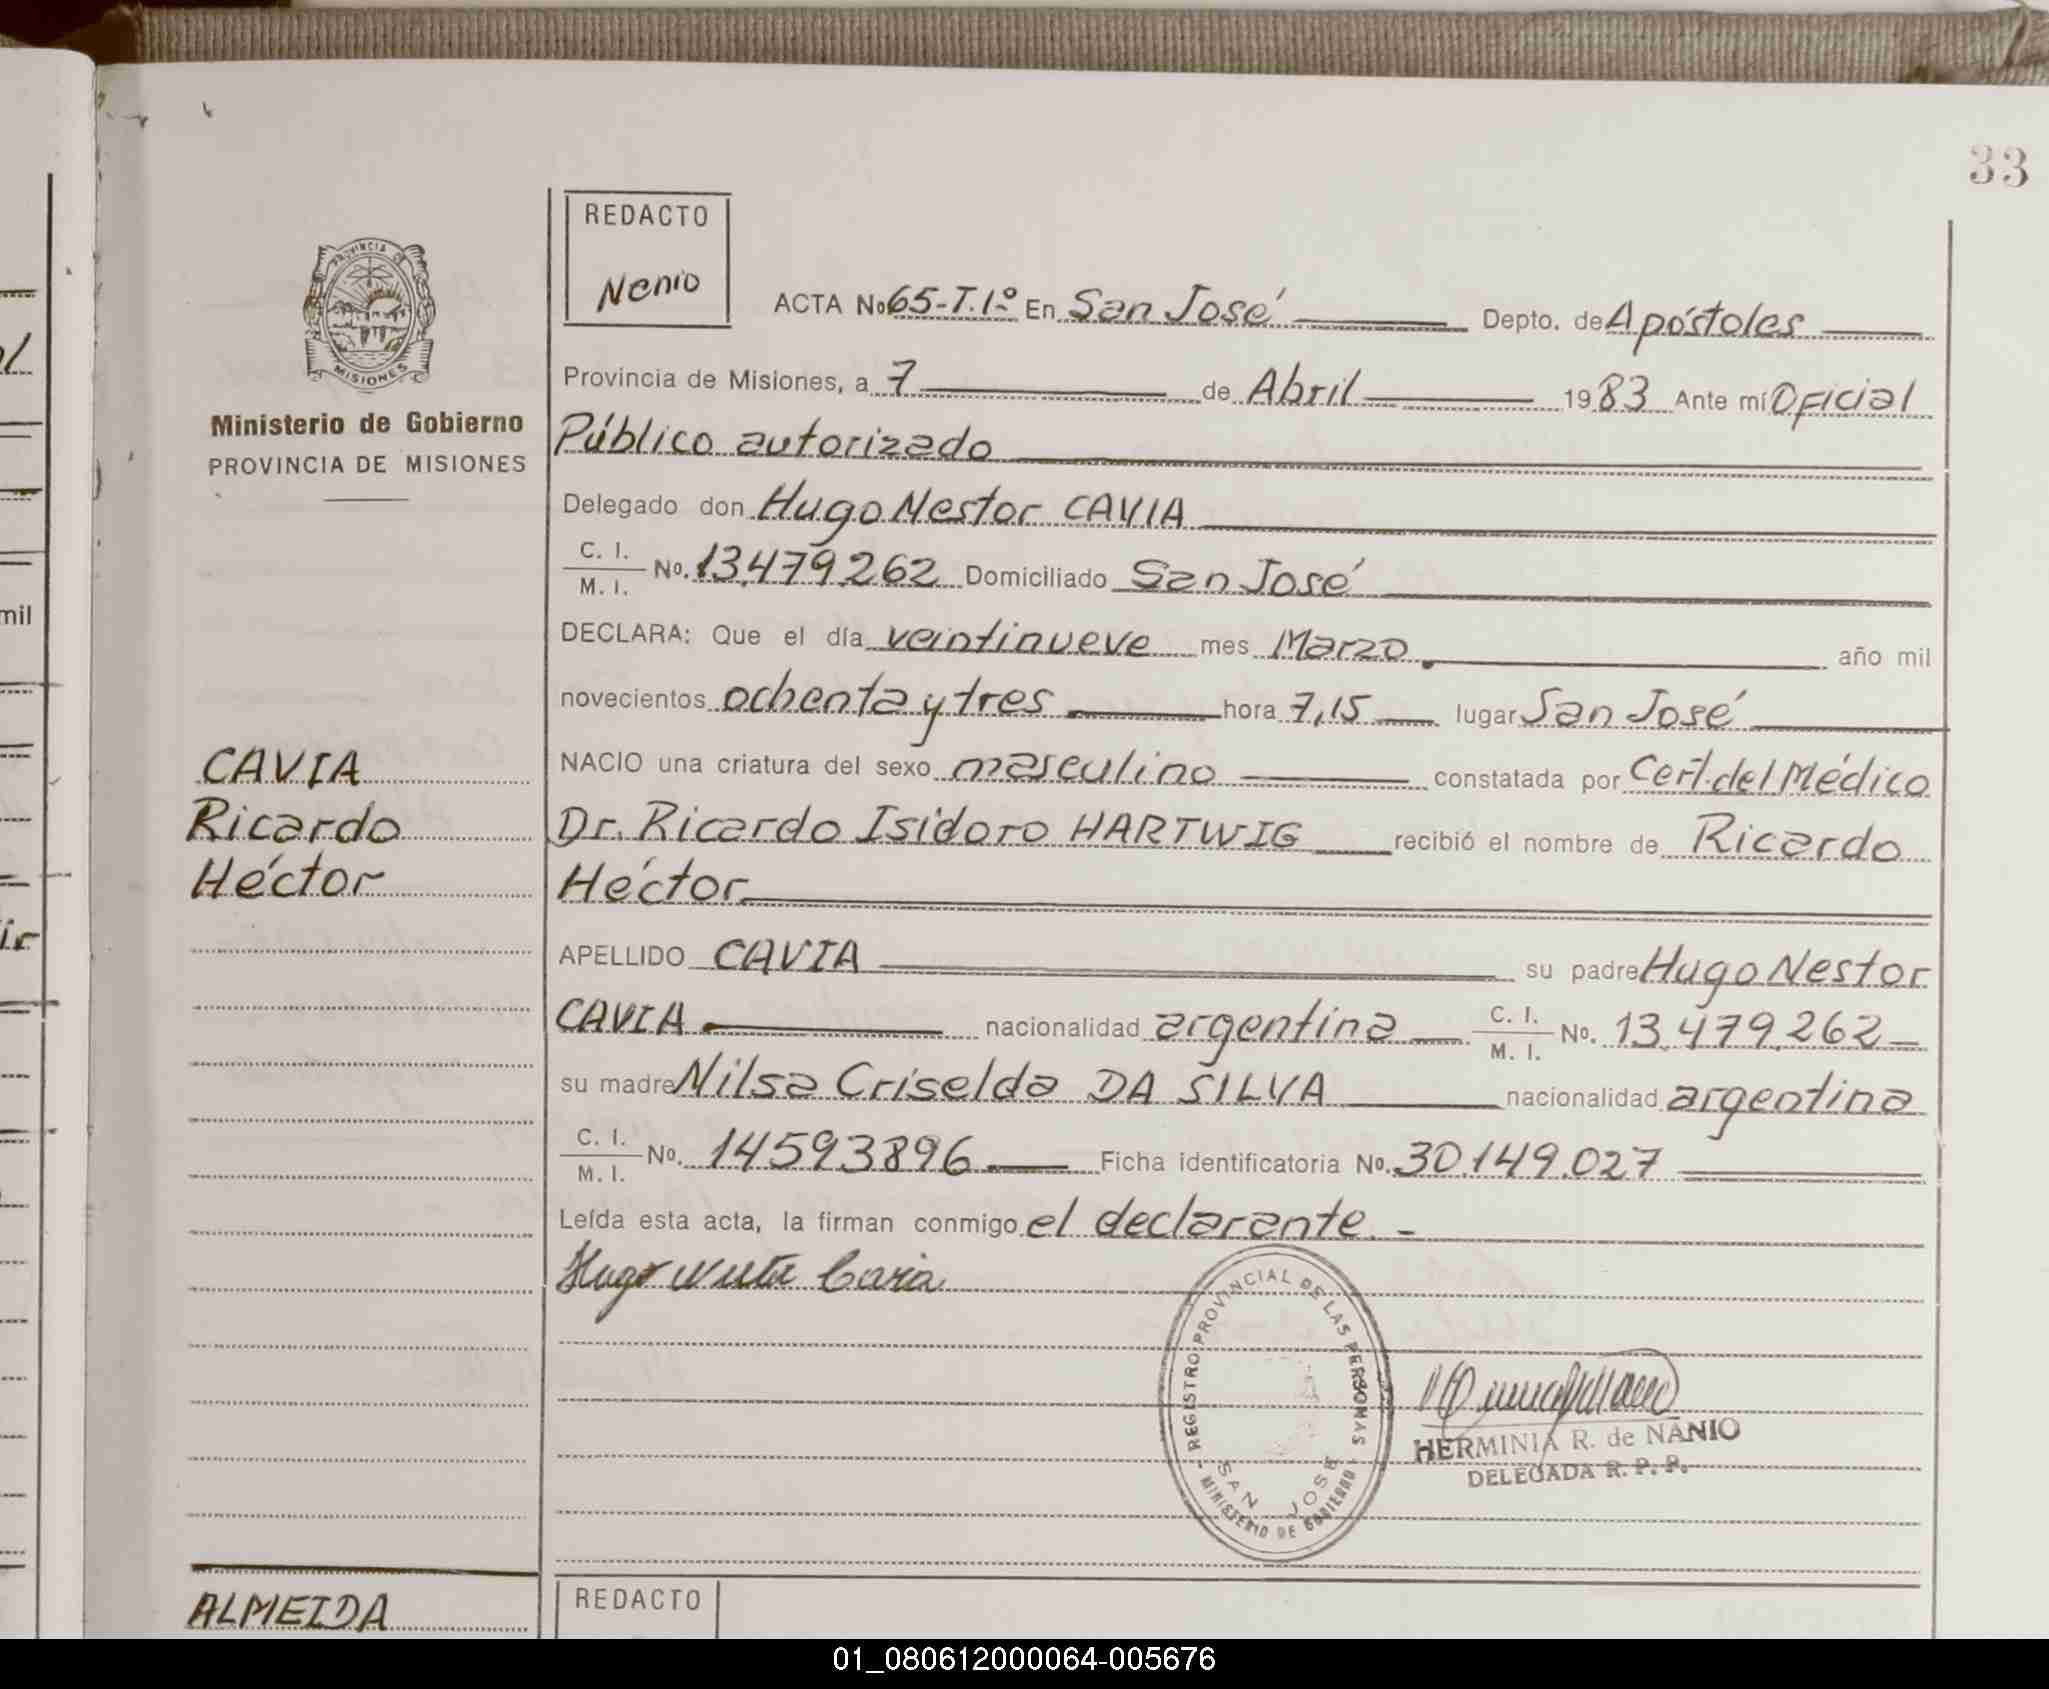 33
REDACTO
Nenio
PROVINCIA DE
MISIONES
Ministerio de Gobierno
PROVINCIA DE MISIONES
ACTA No 65-T.1º En San José Depto. de Apóstoles
Provincia de Misiones, a 7 de Abril 1983 Ante mí Oficial
Público autorizado
Delegado don Hugo Nestor CAVIA
C. I. / M. I. No. 13.479.262 Domiciliado San José
DECLARA: Que el día veintinueve mes Marzo. año mil
novecientos ochenta y tres hora 7,15 lugar San José
NACIO una criatura del sexo masculino constatada por Cert. del Médico
Dr. Ricardo Isidoro HARTWIG recibió el nombre de Ricardo
Héctor
APELLIDO CAVIA su padre Hugo Nestor
CAVIA nacionalidad argentina C. I. / M. I. No. 13.479.262
su madre Nilsa Criselda DA SILVA nacionalidad argentina
C. I. / M. I. No. 14593896 Ficha identificatoria No. 30.149.027
Leída esta acta, la firman conmigo el declarante. -
CAVIA
Ricardo
Héctor
REGISTRO PROVINCIAL DE LAS PERSONAS
SAN JOSE
MINISTERIO DE GOBIERNO
HERMINIA R. de NANIO
DELEGADA R. P. P.
ALMEIDA
REDACTO
mil
01_080612000064-005676